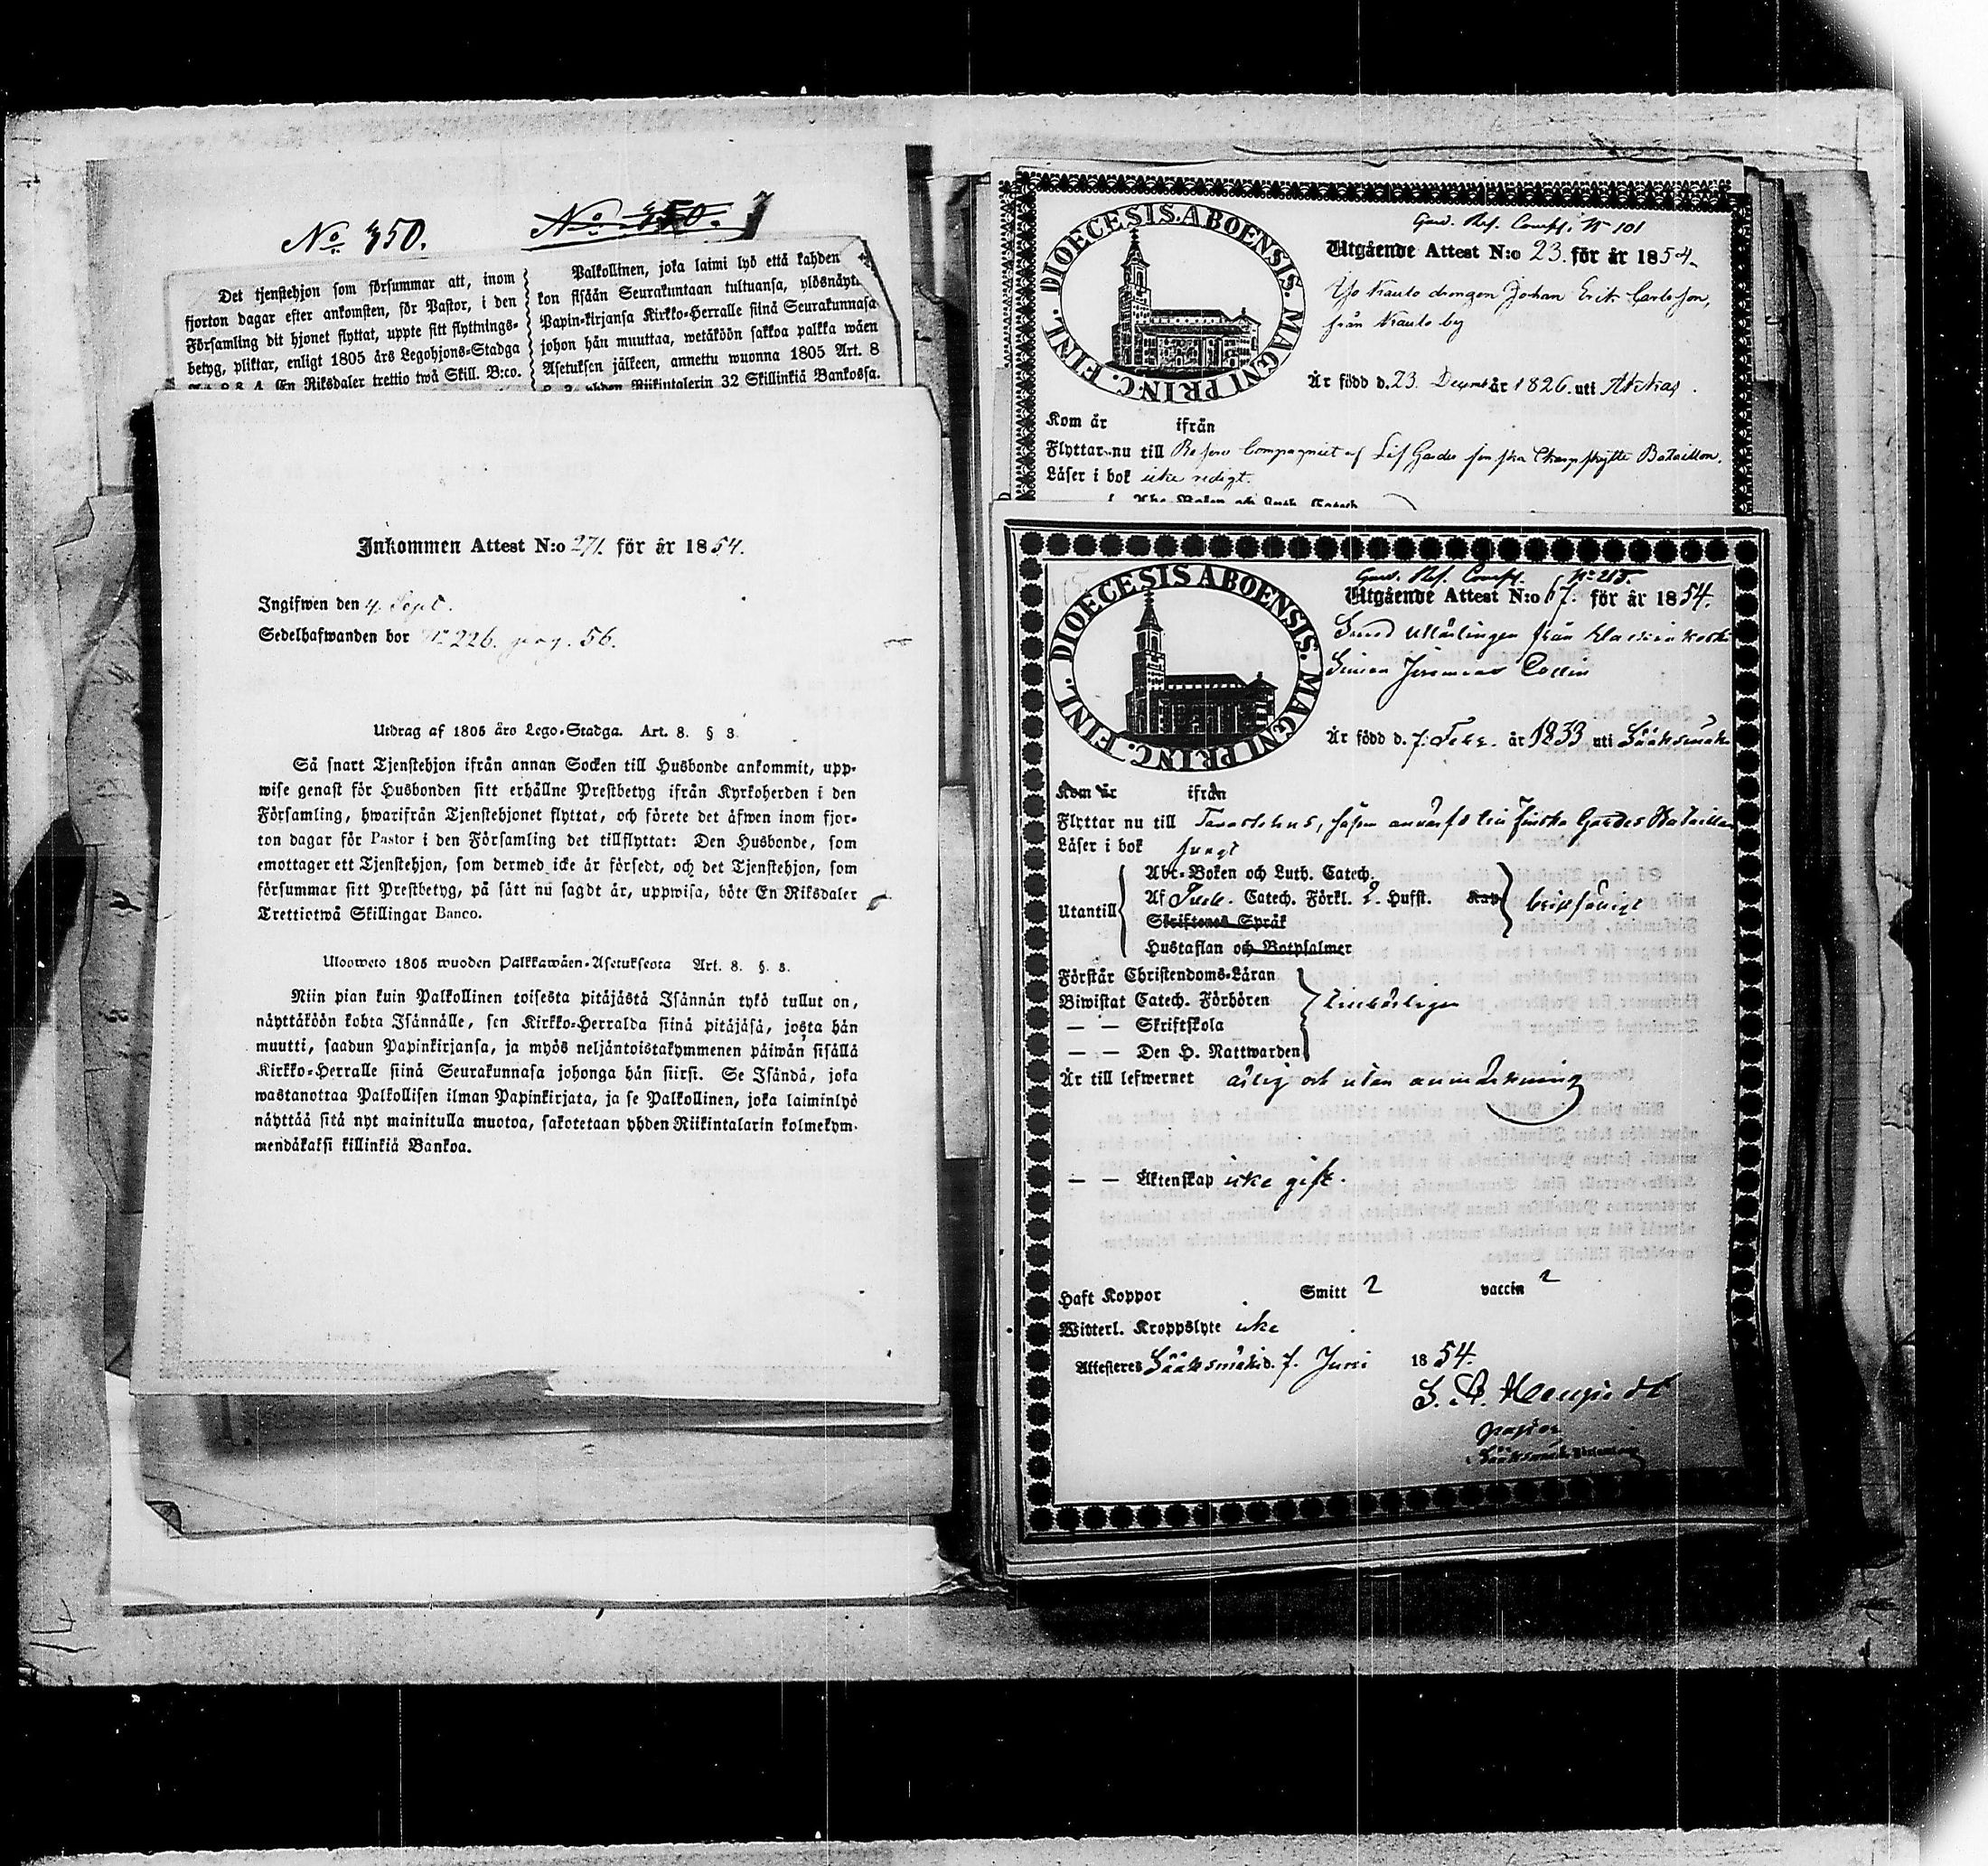 No. 350.
No. 350.
Det tjenstehjon som försummar att, inom
fjorton dagar efter ankomsten, för Pastor, i den
Församling dit hjonet flyttat, uppte sitt flyttnings-
betyg, pliktar, enligt 1805 års Legohjons-Stadga
En Riksdaler trettio twå Skill. B:co.
Palkollinen, joka laimi lyö että kahden
kon sisään Seurakuntaan tultuansa, ylösnäytt
Papin-kirjansa Kirkko-Herralle siinä Seurakunnasa
johon hän muuttaa, wetäköön sakkoa palkka wäen
Asetuksen jälkeen, annettu wuonna 1805 Art. 8
yhden Riikintalerin 32 Skillinkiä Bankossa.
Inkommen Attest N:o 271. för år 1854.
Ingifwen den 4. Sept.
Sedelhafwanden bor No 226. pag. 56.
Utdrag af 1805 års Lego-Stadga. Art. 8. § 3.
Så snart Tjenstehjon ifrån annan Socken till Husbonde ankommit, upp-
wise genast för Husbonden sitt erhållne Prestbetyg ifrån Kyrkoherden i den
Församling, hwarifrån Tjenstehjonet flyttat, och förete det äfwen inom fjor-
ton dagar för Pastor i den Församling det tillflyttat: Den Husbonde, som
emottager ett Tjenstehjon, som dermed icke är försedt, och det Tjenstehjon, som
försummar sitt Prestbetyg, på sätt nu sagdt är, uppwisa, böte En Riksdaler
Trettiotwå Skillingar Banco.
Ulosweto 1805 wuoden Palkkawäen-Asetuksesta Art. 8. §. 3.
Niin pian kuin Palkollinen toisesta pitäjästä Isännän tykö tullut on,
näyttäköön kohta Isännälle, sen Kirkko-Herralda siinä pitäjäsä, josta hän
muutti, saadun Papinkirjansa, ja myös neljäntoistakymmenen päiwän sisällä
Kirkko-Herralle siinä Seurakunnasa johonga hän siirsi. Se Isändä, joka
wastanottaa Palkollisen ilman Papinkirjata, ja se Palkollinen, joka laiminlyö
näyttää sitä nyt mainitulla muotoa, sakotetaan yhden Riikintalarin kolmekym-
mendäkaksi killinkiä Bankoa.
DIOECESIS ABOENSIS. MAGNI PRINC. FINL.
Gard. Res. Comp. No 101
Utgående Attest N:o 23. för år 1854.
drengen Johan Erik Carlsson,
från by
Är född d. 23. Decemb år 1826. uti Akkas.
Kom år ifrån
Flyttar nu till Reserv Compagniet af Lif Gardes finska Skarpskytte Bataillon.
Läser i bok icke redigt.
Abc-Boken och Luth. Catech.
DIOECESIS ABOENSIS. MAGNI PRINC. FINL.
Gard. Res. Comp. No 215.
Utgående Attest N:o 67. för år 1854.
från
Simon Collin
Är född d. 7. Febr. år 1833 uti Sääksmäki
Kom år ifrån
Flyttar nu till Tavastehus, såsom finska Gardes Bataillon
Läser i bok svagt
Utantill
Abc-Boken och Luth. Catech.
Af Catech. Förkl. 2. Hufst. Kap
Skriftenes Språk
Hustaflan och Botpsalmer
Förstår Christendoms-Läran
Biwistat Catech. Förhören
— — Skriftskola
— — Den H. Nattwarden
Är till lefwernet ärlig och utan anmärkning
— — Äktenskap icke gift.
Haft Koppor Smitt 2 vaccin 2
Witterl. Kroppslyte icke
Attesteres Sääksmäki d. 7. Juni 1854.
Pastor